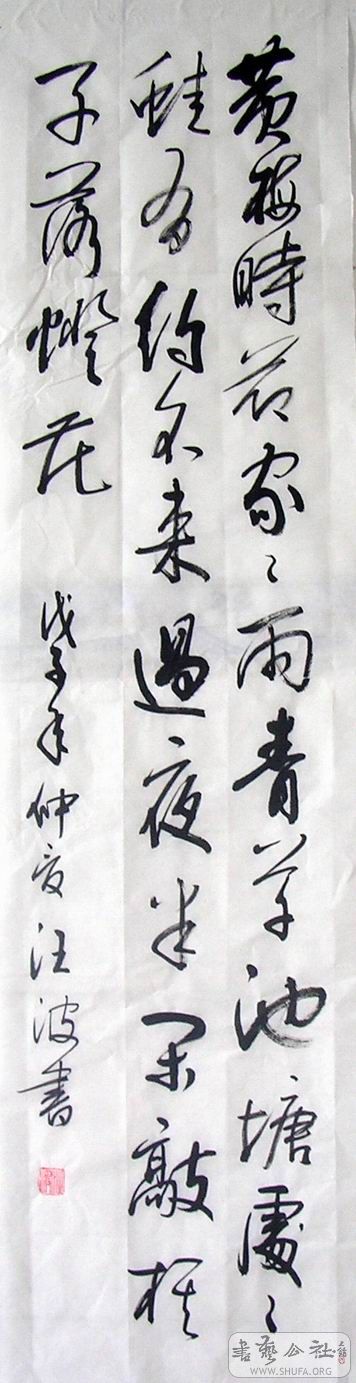 黄梅時节家〻雨青草池塘處〻
蛙有約不来過夜半闲敲棋
子落燈花 戊子年仲夏汪波書
書藝公社
WWW.SHUFA.ORG